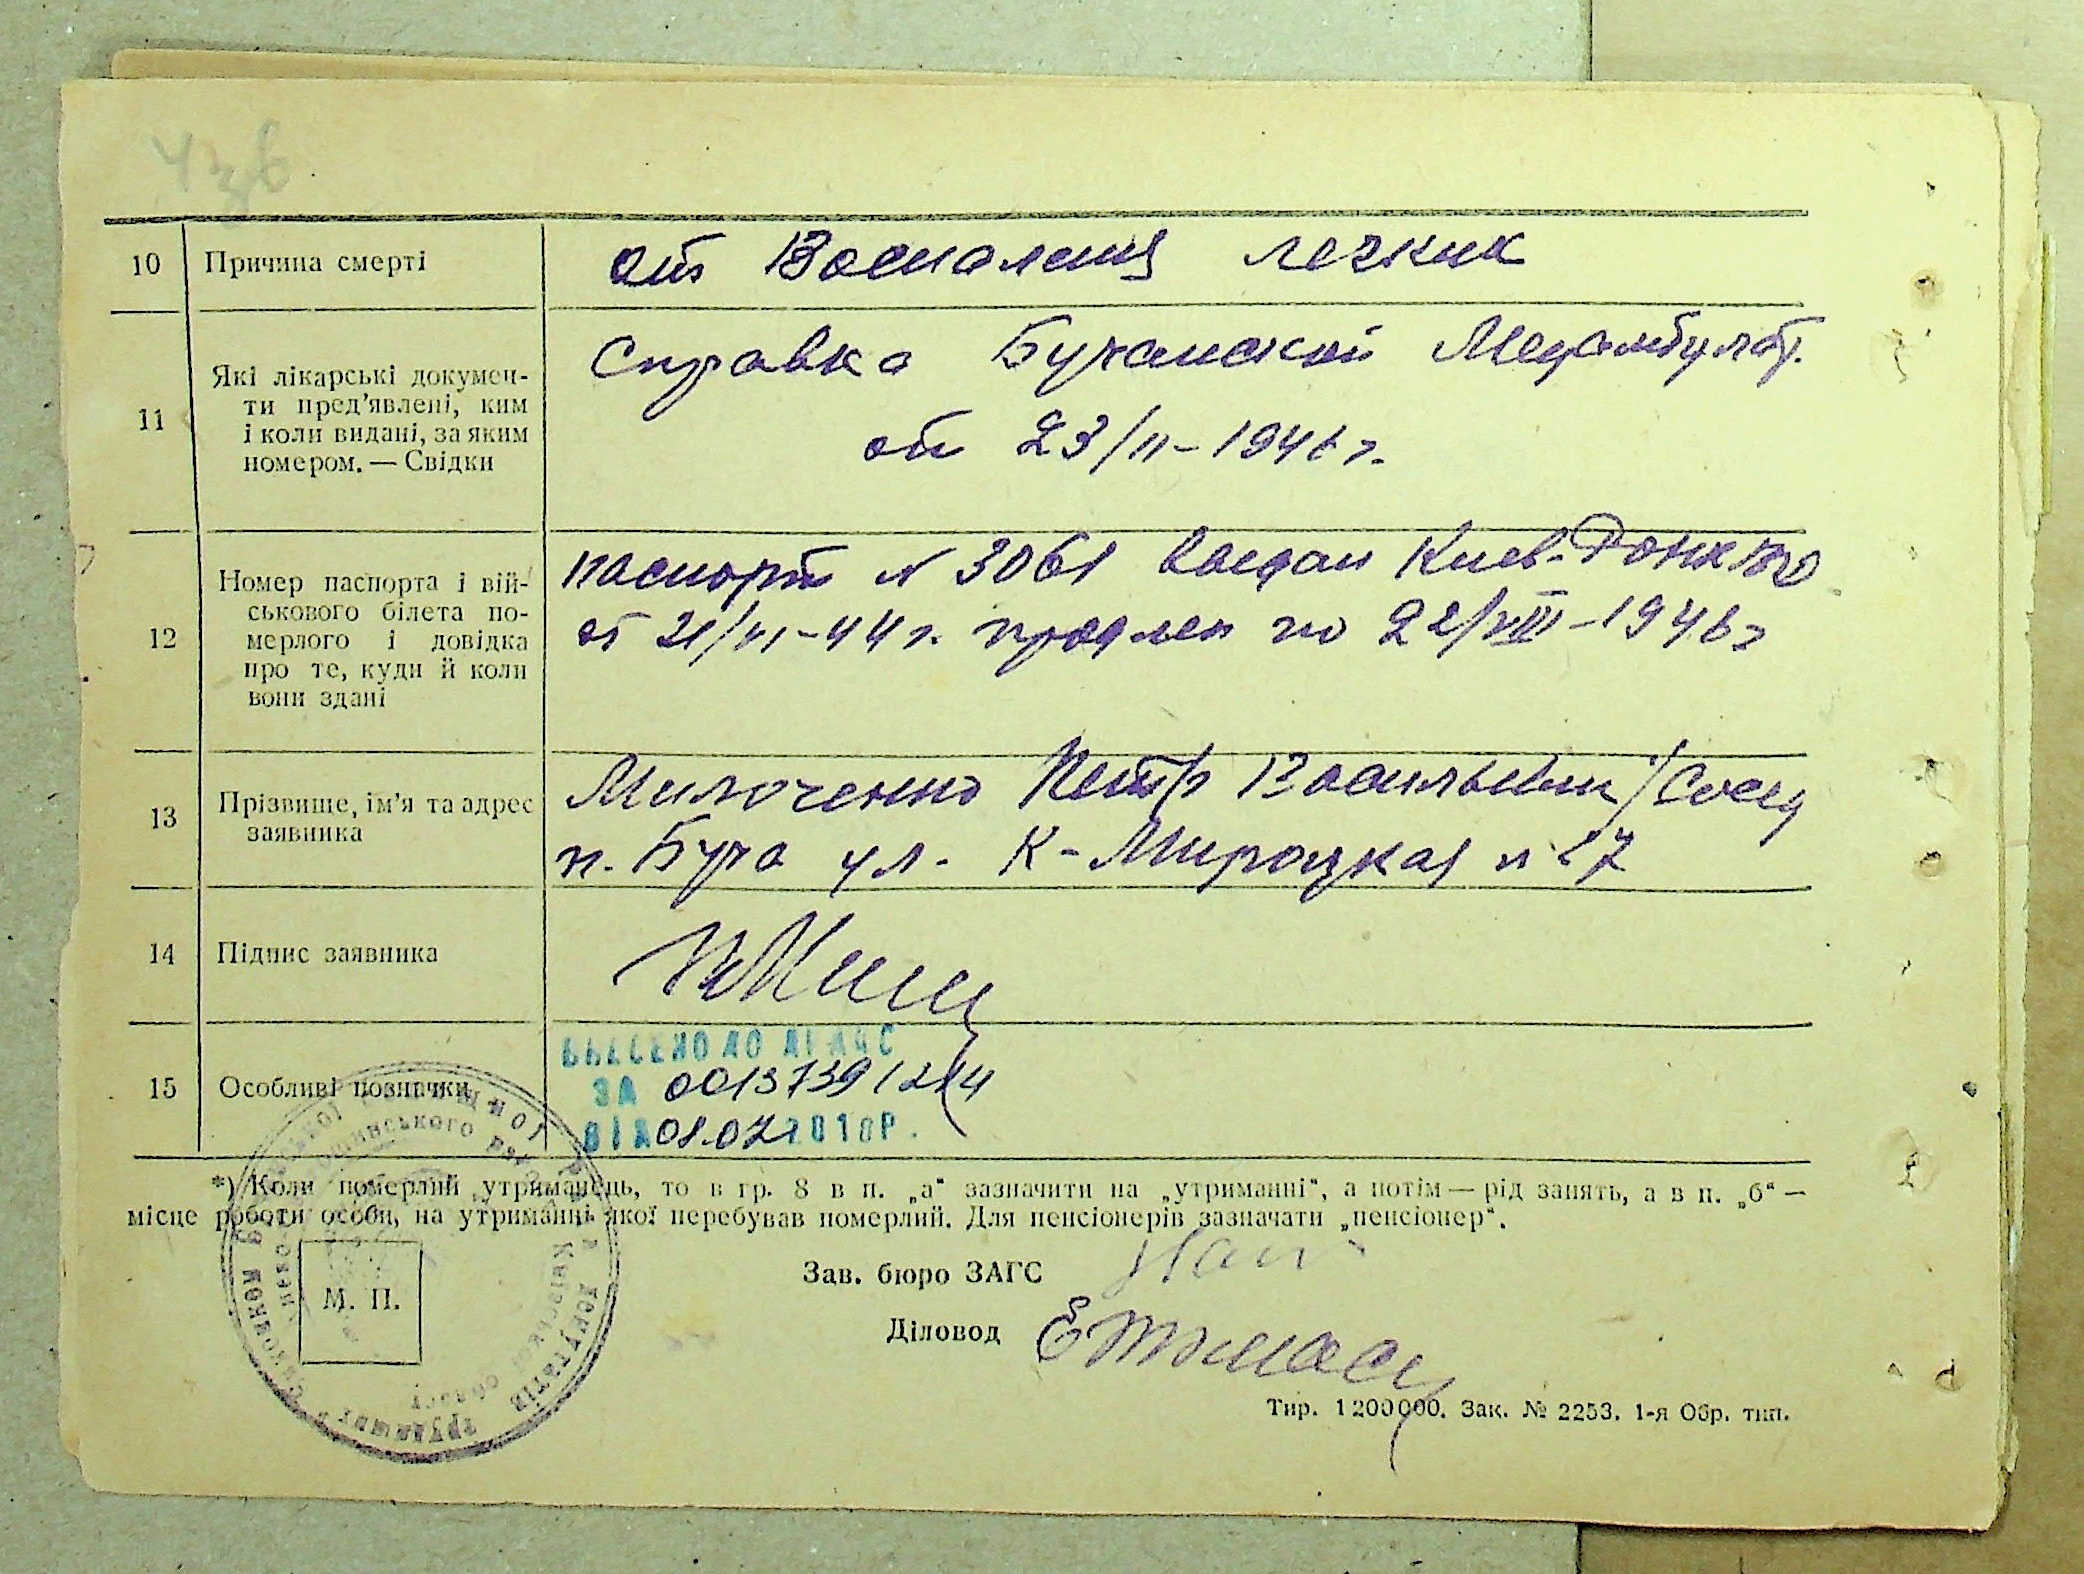 10 Причина смерті от Воспаления легких
11 Які лікарські докумен-
ти пред'явлені, ким
і коли видані, за яким
номером. — Свідки
Справка Бучанской Медамбулат.
от 23/II-1946 г.
12 Номер паспорта і вій-
ськового білета по-
мерлого і довідка
про те, куди й коли
вони здані
паспорт N 3061 выдан Киев-
от 21/VI-44 г. продлен по 22/VIII-1946 г
13 Прізвище, ім'я та адрес
заявника
Милюченко Петр Васильевич / Сосед
п. Буча ул. К-Мироцкая N 27
14 Підпис заявника
15 Особливі позначки
ВНЕСЕНО ДО ДРАЦС
ЗА 00137391214
ВІД 08.02 2010Р.
*) Коли померлий утриманець, то в гр. 8 в п. „а“ зазначити на „утриманні“, а потім — рід занять, а в п. „б“ —
місце роботи особи, на утриманні якої перебував померлий. Для пенсіонерів зазначати „пенсіонер“.
Зав. бюро ЗАГС
М. П.
Діловод
Тир. 1 200 000. Зак. № 2253. 1-я Обр. тип.